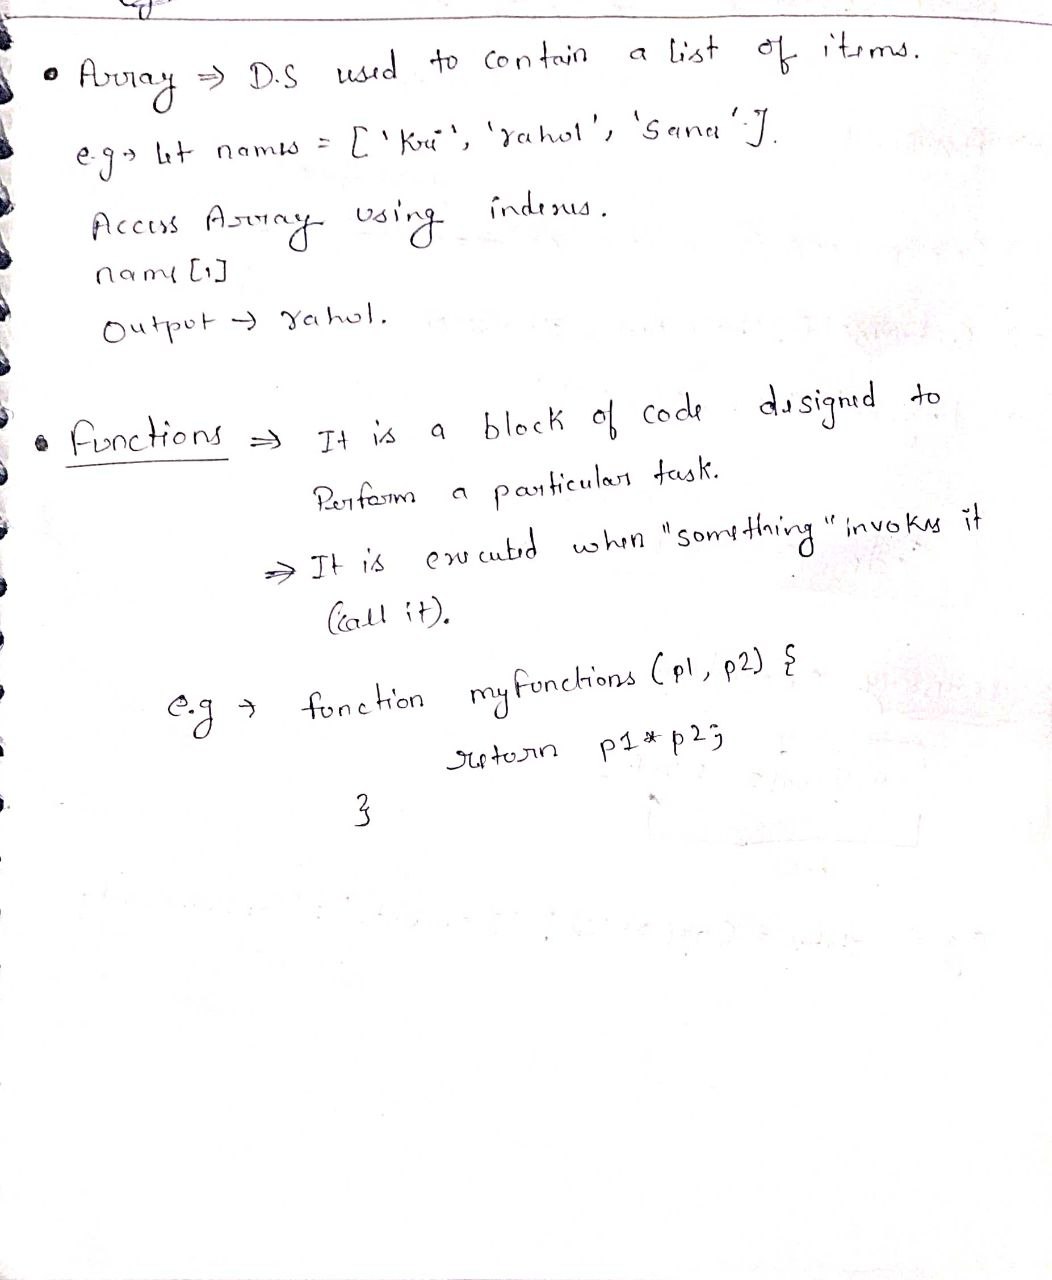 • Array ⇒ D.S used to contain a list of items.
e.g → let names = ['Kri', 'rahul', 'Sana'].
Access Array using indexes.
name[1]
Output → rahul.
• Functions ⇒ It is a block of code designed to
Perform a particular task.
⇒ It is executed when "something" invokes it
(call it).
e.g → function myfunctions (p1, p2) {
return p1 * p2;
}